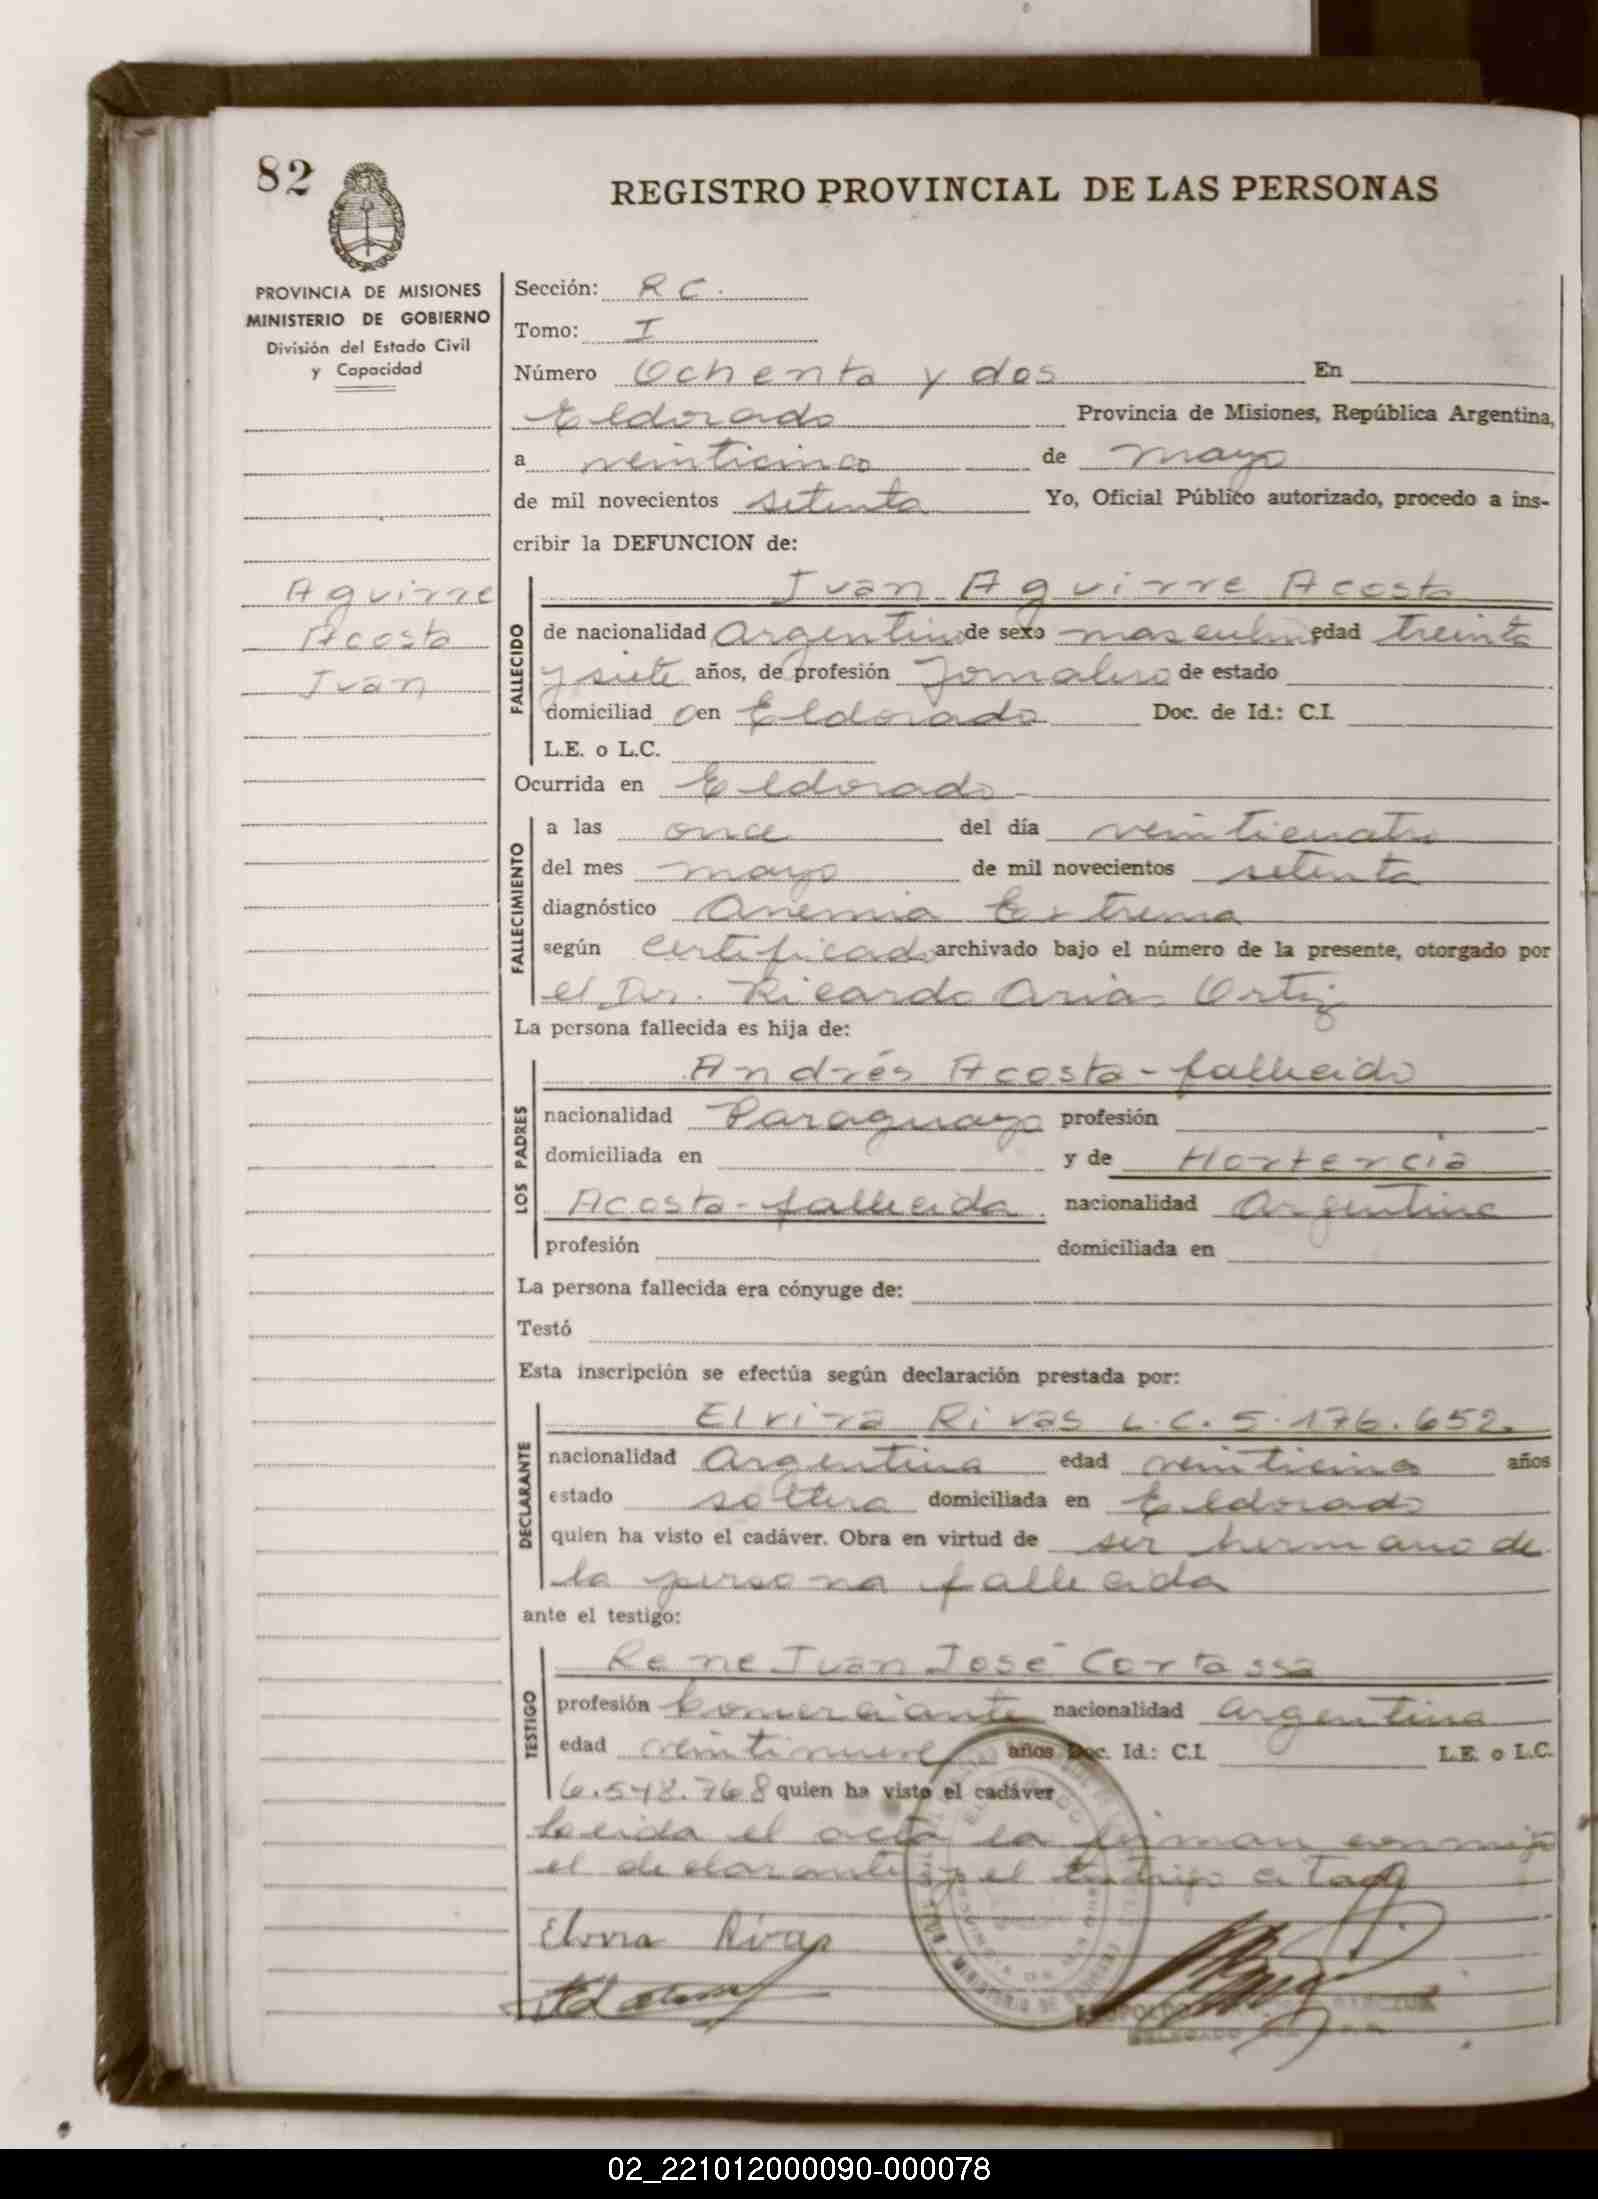 82
REGISTRO PROVINCIAL DE LAS PERSONAS
PROVINCIA DE MISIONES
MINISTERIO DE GOBIERNO
División del Estado Civil
y Capacidad
Aguirre
Acosta
Juan
Sección: R C.
Tomo: I
Número Ochenta y dos En
Eldorado Provincia de Misiones, República Argentina,
a veinticinco de mayo
de mil novecientos setenta Yo, Oficial Público autorizado, procedo a ins-
cribir la DEFUNCION de:
FALLECIDO
Juan Aguirre Acosta
de nacionalidad Argentino de sexo masculino edad treinta
y siete años, de profesión Jornalero de estado
domiciliad o en Eldorado Doc. de Id.: C.I.
L.E. o L.C.
Ocurrida en Eldorado
FALLECIMIENTO
a las once del día veinticuatro
del mes mayo de mil novecientos setenta
diagnóstico Anemia Extrema
según Certificado archivado bajo el número de la presente, otorgado por
el Dr. Ricardo Arias Ortiz
La persona fallecida es hija de:
LOS PADRES
Andrés Acosta - fallecido
nacionalidad Paraguayo profesión
domiciliada en y de Hortercia
Acosta - fallecida. nacionalidad Argentina
profesión domiciliada en
La persona fallecida era cónyuge de:
Testó
Esta inscripción se efectúa según declaración prestada por:
DECLARANTE
Elvira Rivas L.C. 5.176.652.
nacionalidad Argentina edad veinticinco años
estado soltera domiciliada en Eldorado
quien ha visto el cadáver. Obra en virtud de ser hermano de
la persona fallecida
ante el testigo:
TESTIGO
Rene Juan José Cortassa
profesión Comerciante nacionalidad Argentina
edad veintinueve años Doc. Id.: C.I. L.E. o L.C.
6.548.768 quien ha visto el cadáver
Leida el acta la firman conmigo
el declarante y el testigo citado
Elvira Rivas
DELEGADO
02_221012000090-000078